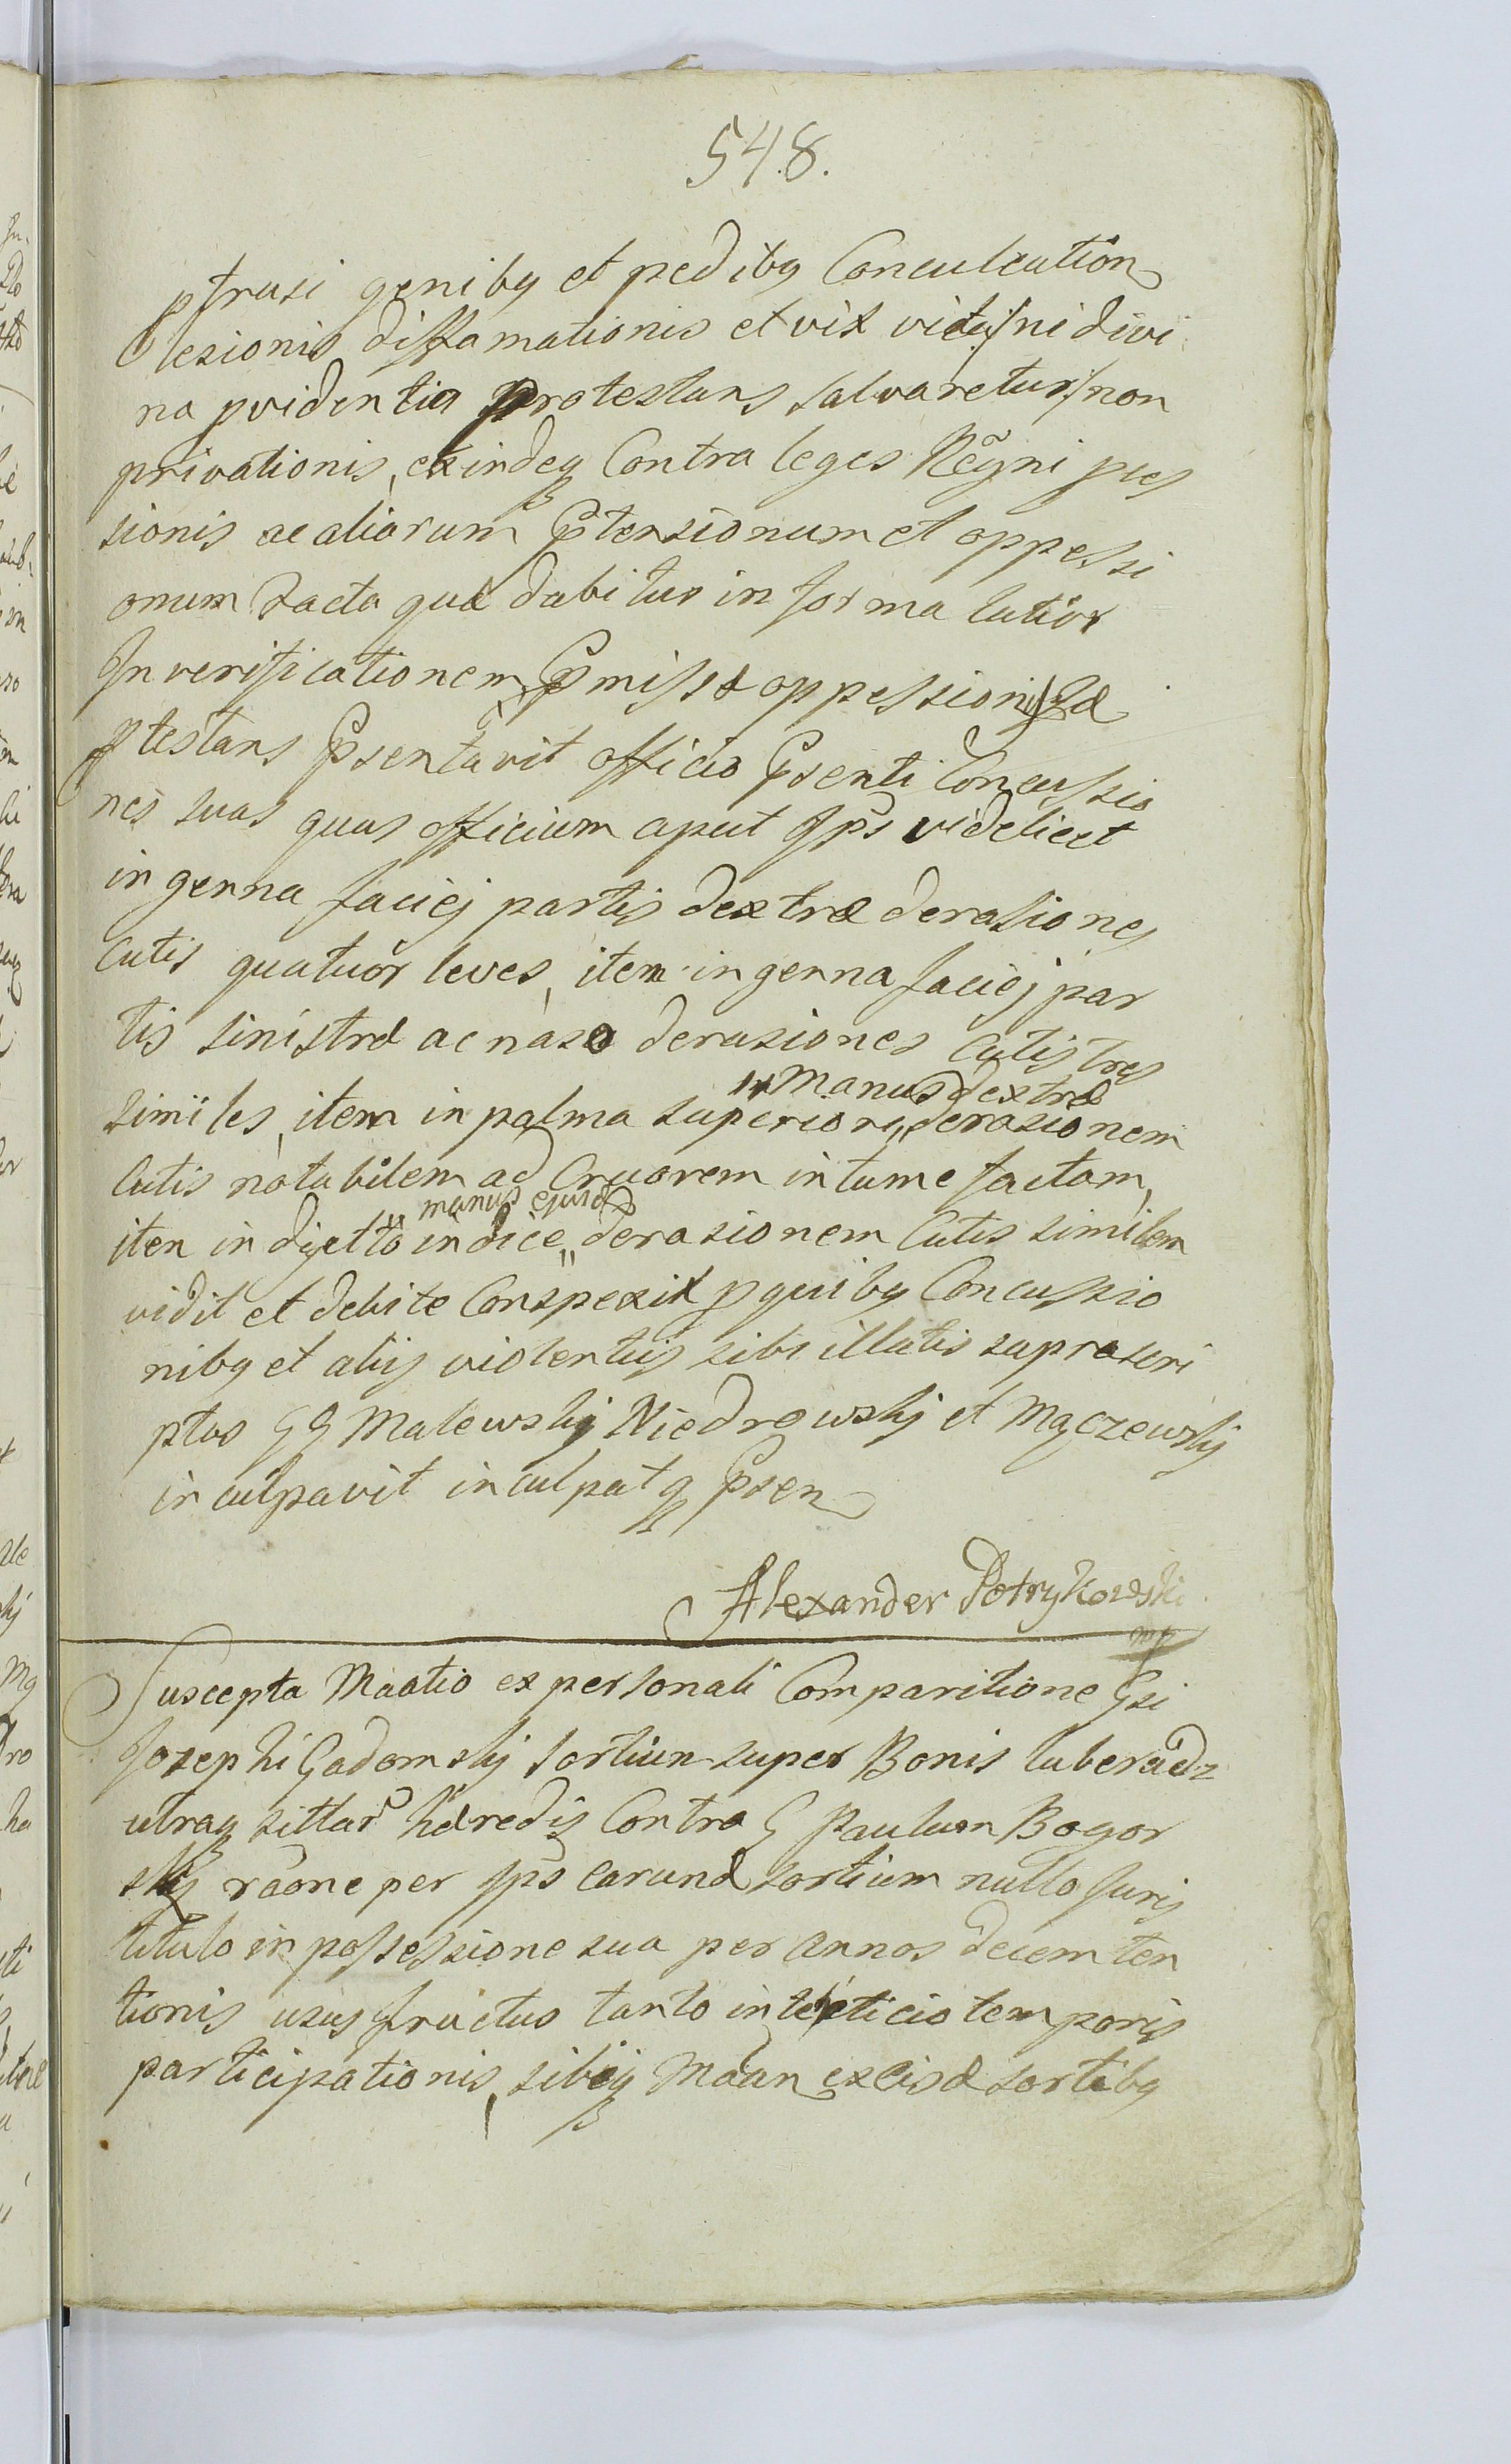 548.
ptrusi genibq et pedibq Conculcation
lesionis diffamationis et vix vitæ /ni divi
na pvidentia Protestans salvaretur/ non
privationis, exindeq Contra leges Regni pres
sionis ac aliarum Ptensionum et oppessi
onum facta quæ dabitur in forma latior
In verificationem Pmissæ oppessionis Id
ptestans Psentavit officio Psenti Concussio
nes suas quas officium aput Ips videlicet
in genna faciej partis dextræ derasiones
Cutis quatuor leves, item in genna faciej par
tis sinistræ ac naso derasiones Cutis tres
" manus dextræ
similes, item in palma superiori " derasionem
Cutis notabilem ad Cruorem intumefactam,
" manus ejusdem
item in digitto indice " derasionem Cutis similem
vidit et debite Conspexit p quibq Concussio
nibq et alijs violentijs sibi illatis suprascri
ptos GG Malewskj Niedrowskj et Mączewskj
inculpavit inculpatq Psen
Alexander Potrykowski
mp
Suscepta Maatio ex personali Comparitione Gsi
Josephi Gadomskj sortium super Bonis Luberadz
utraq sittar hæredis Contra G Paulum Bogor
skj raone per Ips earund sortium nullo Juris
titulo in possessione sua per annos decem ten
tionis ususfructus tanto interticio temporis
participationis, sibiq Maan ex eisd sortibq